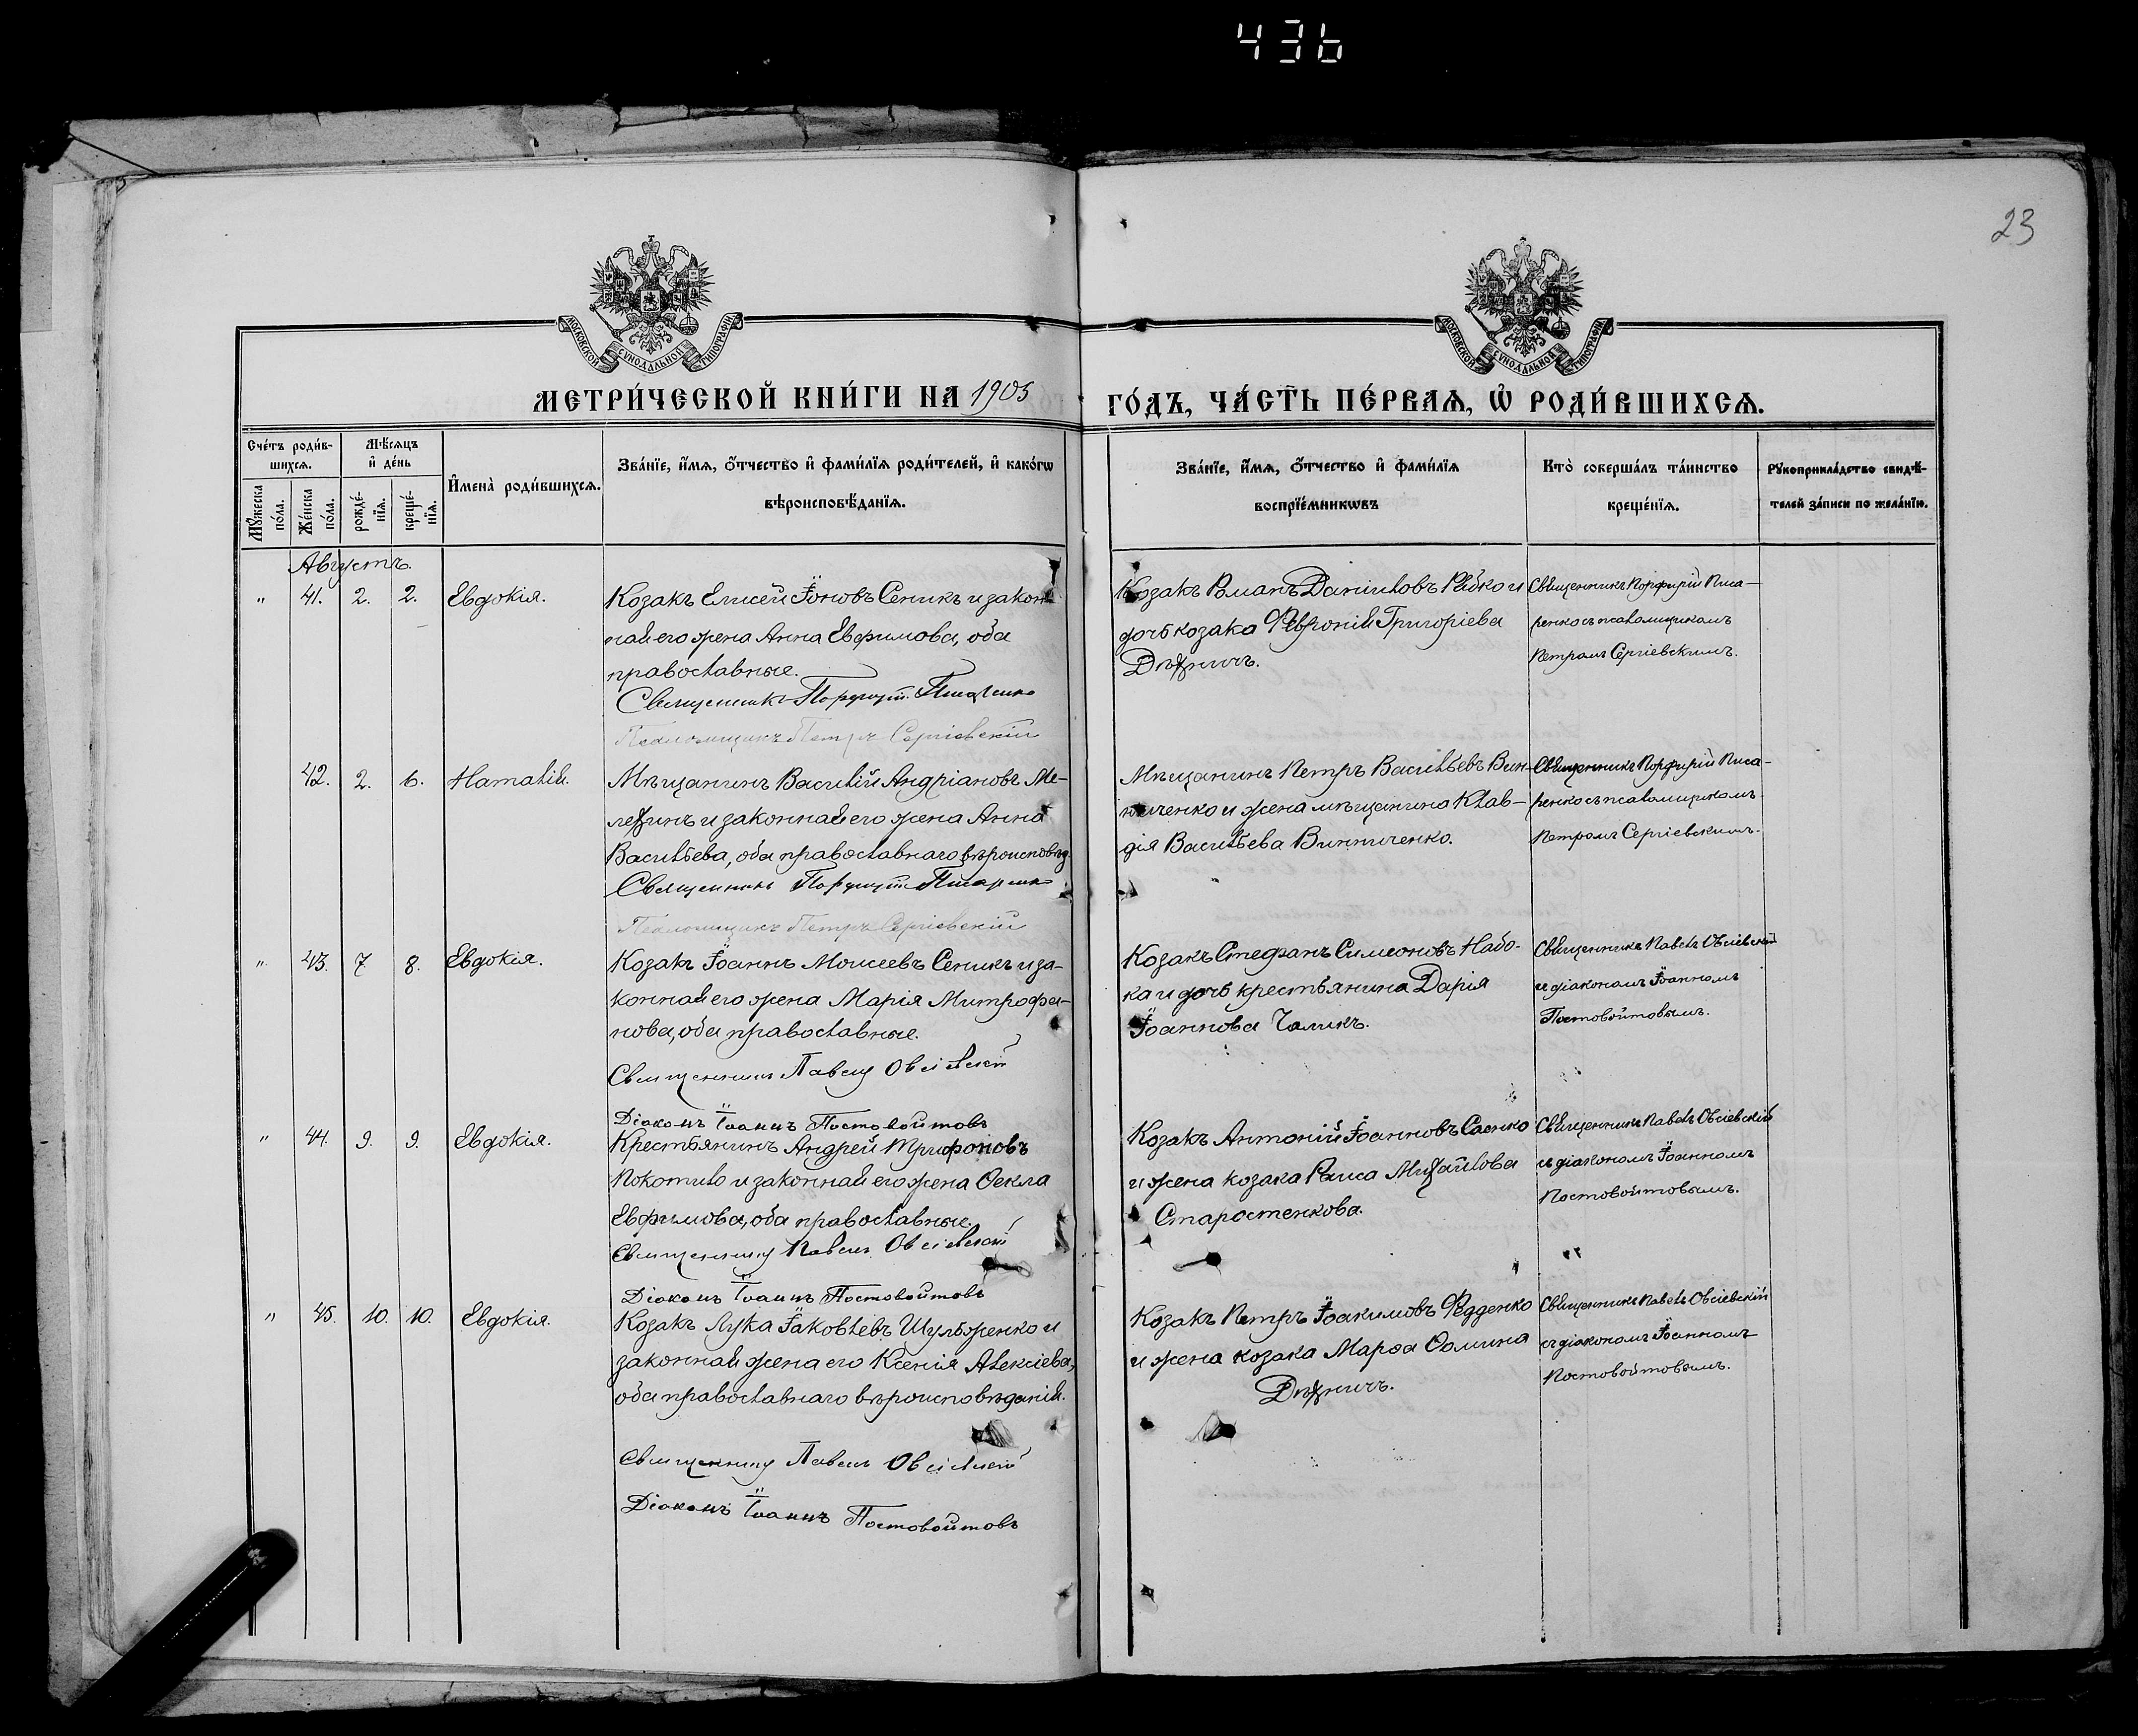 436
23
МОСКОВСКОЙ СѴНОДАЛЬНОЙ ТИПОГРАФІИ
МОСКОВСКОЙ СѴНОДАЛЬНОЙ ТИПОГРАФІИ
МЕТРИ́ЧЕСКОЙ КНИ́ГИ НА 1905
ГО́ДЪ, ЧА́СТЬ ПЕ́РВАѦ, Ѿ РОДИ́ВШИХСѦ.
Сче́тъ роди́в-
шихсѧ.
Мѣ́сѧцъ
и҆ де́нь
Мꙋ́жеска
по́ла.
Же́нска
по́ла.
рожде́-
нїѧ.
креще́-
нїѧ.
И҆мена̀ роди́вшихсѧ.
Зва́нїе, и҆́мѧ, ѻ҆́тчество и҆ фами́лїѧ роди́телей, и҆ како́гѡ
вѣроисповѣ́данїѧ.
Зва́нїе, и҆́мѧ, ѻ҆́тчество и҆ фами́лїѧ
воспрїе́мникѡвъ
Кто̀ соверша́лъ та́инство
креще́нїѧ.
Рꙋкоприкла́дство свидѣ́-
телей за́писи по жела́нїю.
Августъ.
" 41. 2. 2. Евдокія.
Козакъ Елисей Іоновъ Сеникъ и закон-
ная его жена Анна Евфимова, оба
православные.
Священникъ Порфирій Писаренко
Псаломщикъ Петръ Сергіевскій
Козакъ Романъ Даніиловъ Рябко и
дочь козака Феѵронія Григоріева
Дѣхничъ.
Священникъ Порфирій Писа-
ренко съ псаломщикомъ
Петромъ Сергіевскимъ.
42. 2. 6. Наталія.
Мѣщанинъ Василій Андріановъ Ме-
лехинъ и законная его жена Анна
Васильева, оба православнаго вѣроисповѣд.
Священникъ Порфирій Писаренко
Псаломщикъ Петръ Сергіевскій
Мѣщанинъ Петръ Васильевъ Вин-
ниченко и жена мѣщанина Клав-
дія Васильева Винниченко.
Священникъ Порфирій Писа-
ренко съ псаломщикомъ
Петромъ Сергіевскимъ.
" 43. 7. 8. Евдокія.
Козакъ Іоаннъ Моисеевъ Сеникъ и за-
конная его жена Марія Митрофа-
нова, оба православные.
Священникъ Павелъ Овсіевскій
Діаконъ Іоаннъ Постовойтовъ
Козакъ Стефанъ Симеоновъ Набо-
ка и дочь крестьянина Дарія
Іоаннова Чаликъ.
Священникъ Павелъ Овсіевскій
съ діакономъ Іоанномъ
Постовойтовымъ.
" 44. 9. 9. Евдокія.
Крестьянинъ Андрей Трифоновъ
Покотило и законная его жена Ѳекла
Евфимова, оба православные.
Священникъ Павелъ Овсіевскій
Діаконъ Іоаннъ Постовойтовъ
Козакъ Антоній Іоанновъ Саенко
и жена козака Раиса Михайлова
Старостенкова.
Священникъ Павелъ Овсіевскій
съ діакономъ Іоанномъ
Постовойтовымъ.
" 45. 10. 10. Евдокія.
Козакъ Лука Іаковлевъ Шульженко и
законная жена его Ксенія Алексіева,
оба православнаго вѣроисповѣданія.
Священникъ Павелъ Овсіевскій
Діаконъ Іоаннъ Постовойтовъ
Козакъ Петръ Іоакимовъ Федденко
и жена козака Марѳа Ѳомина
Дѣхничъ.
Священникъ Павелъ Овсіевскій
съ діакономъ Іоанномъ
Постовойтовымъ.